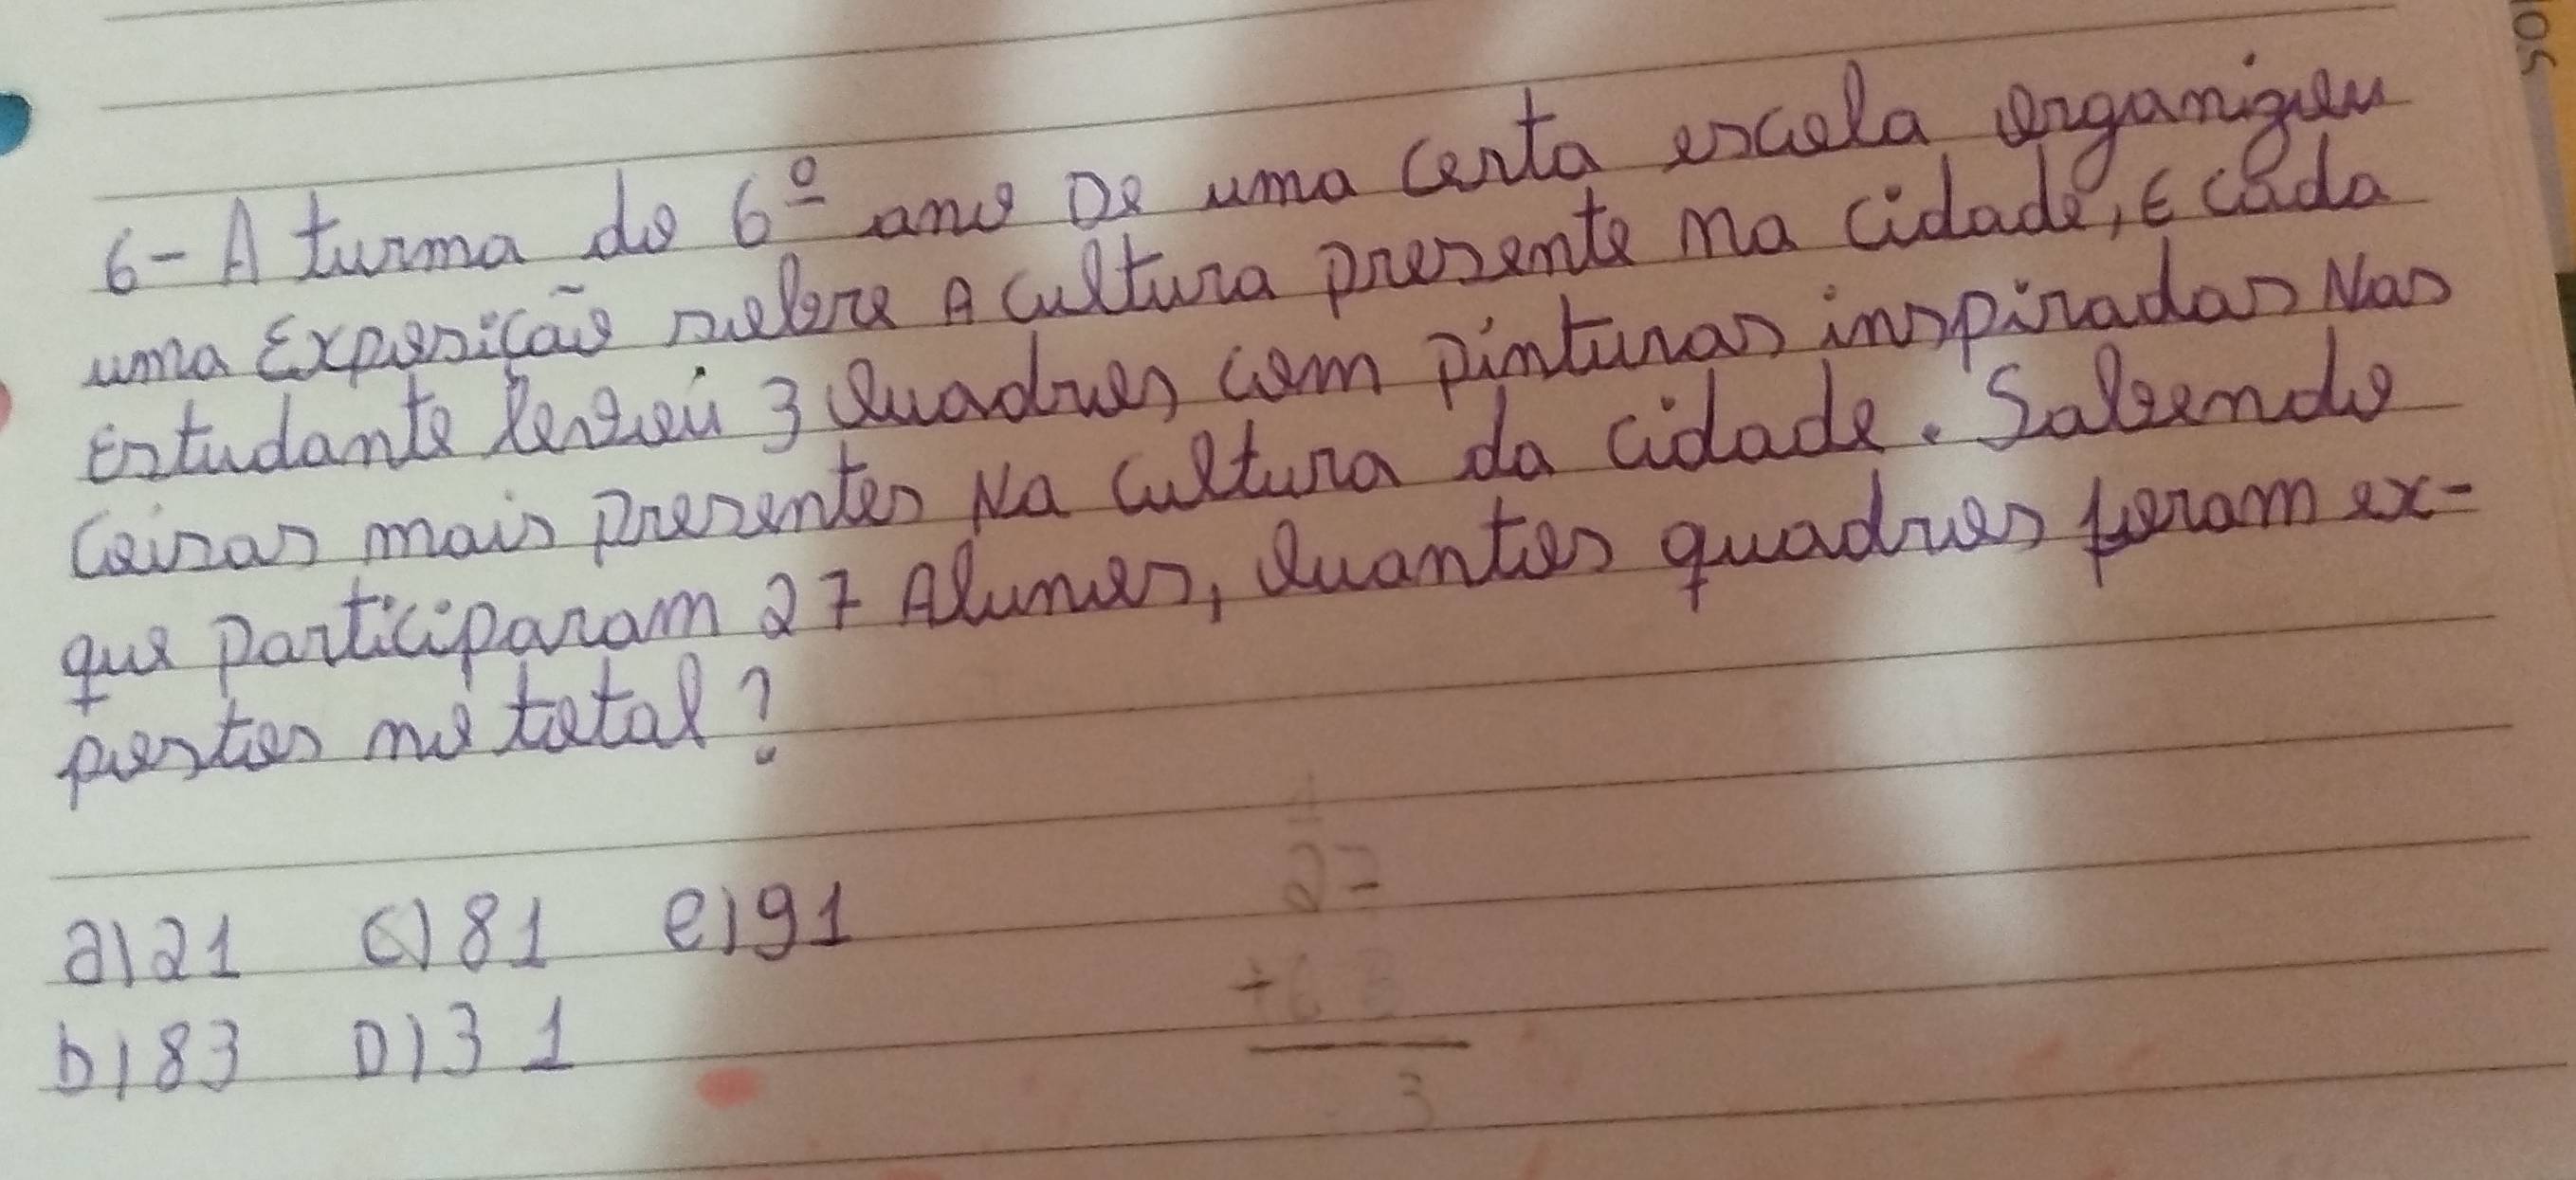 6- A turma do 6º ano De uma certa escola organizou
uma Exposição sobre A cultura presente na cidade, E cada
Estudante levou 3 Quadros com pinturas inspiradas Nas
Coisas mais presentes Na cultura da cidade. Sabendo
que participaram 27 Alunos, Quantos quadros foram ex-
postos no total?
a) 21 c) 81 e) 91
b) 83 D) 31
1
27
+6
3